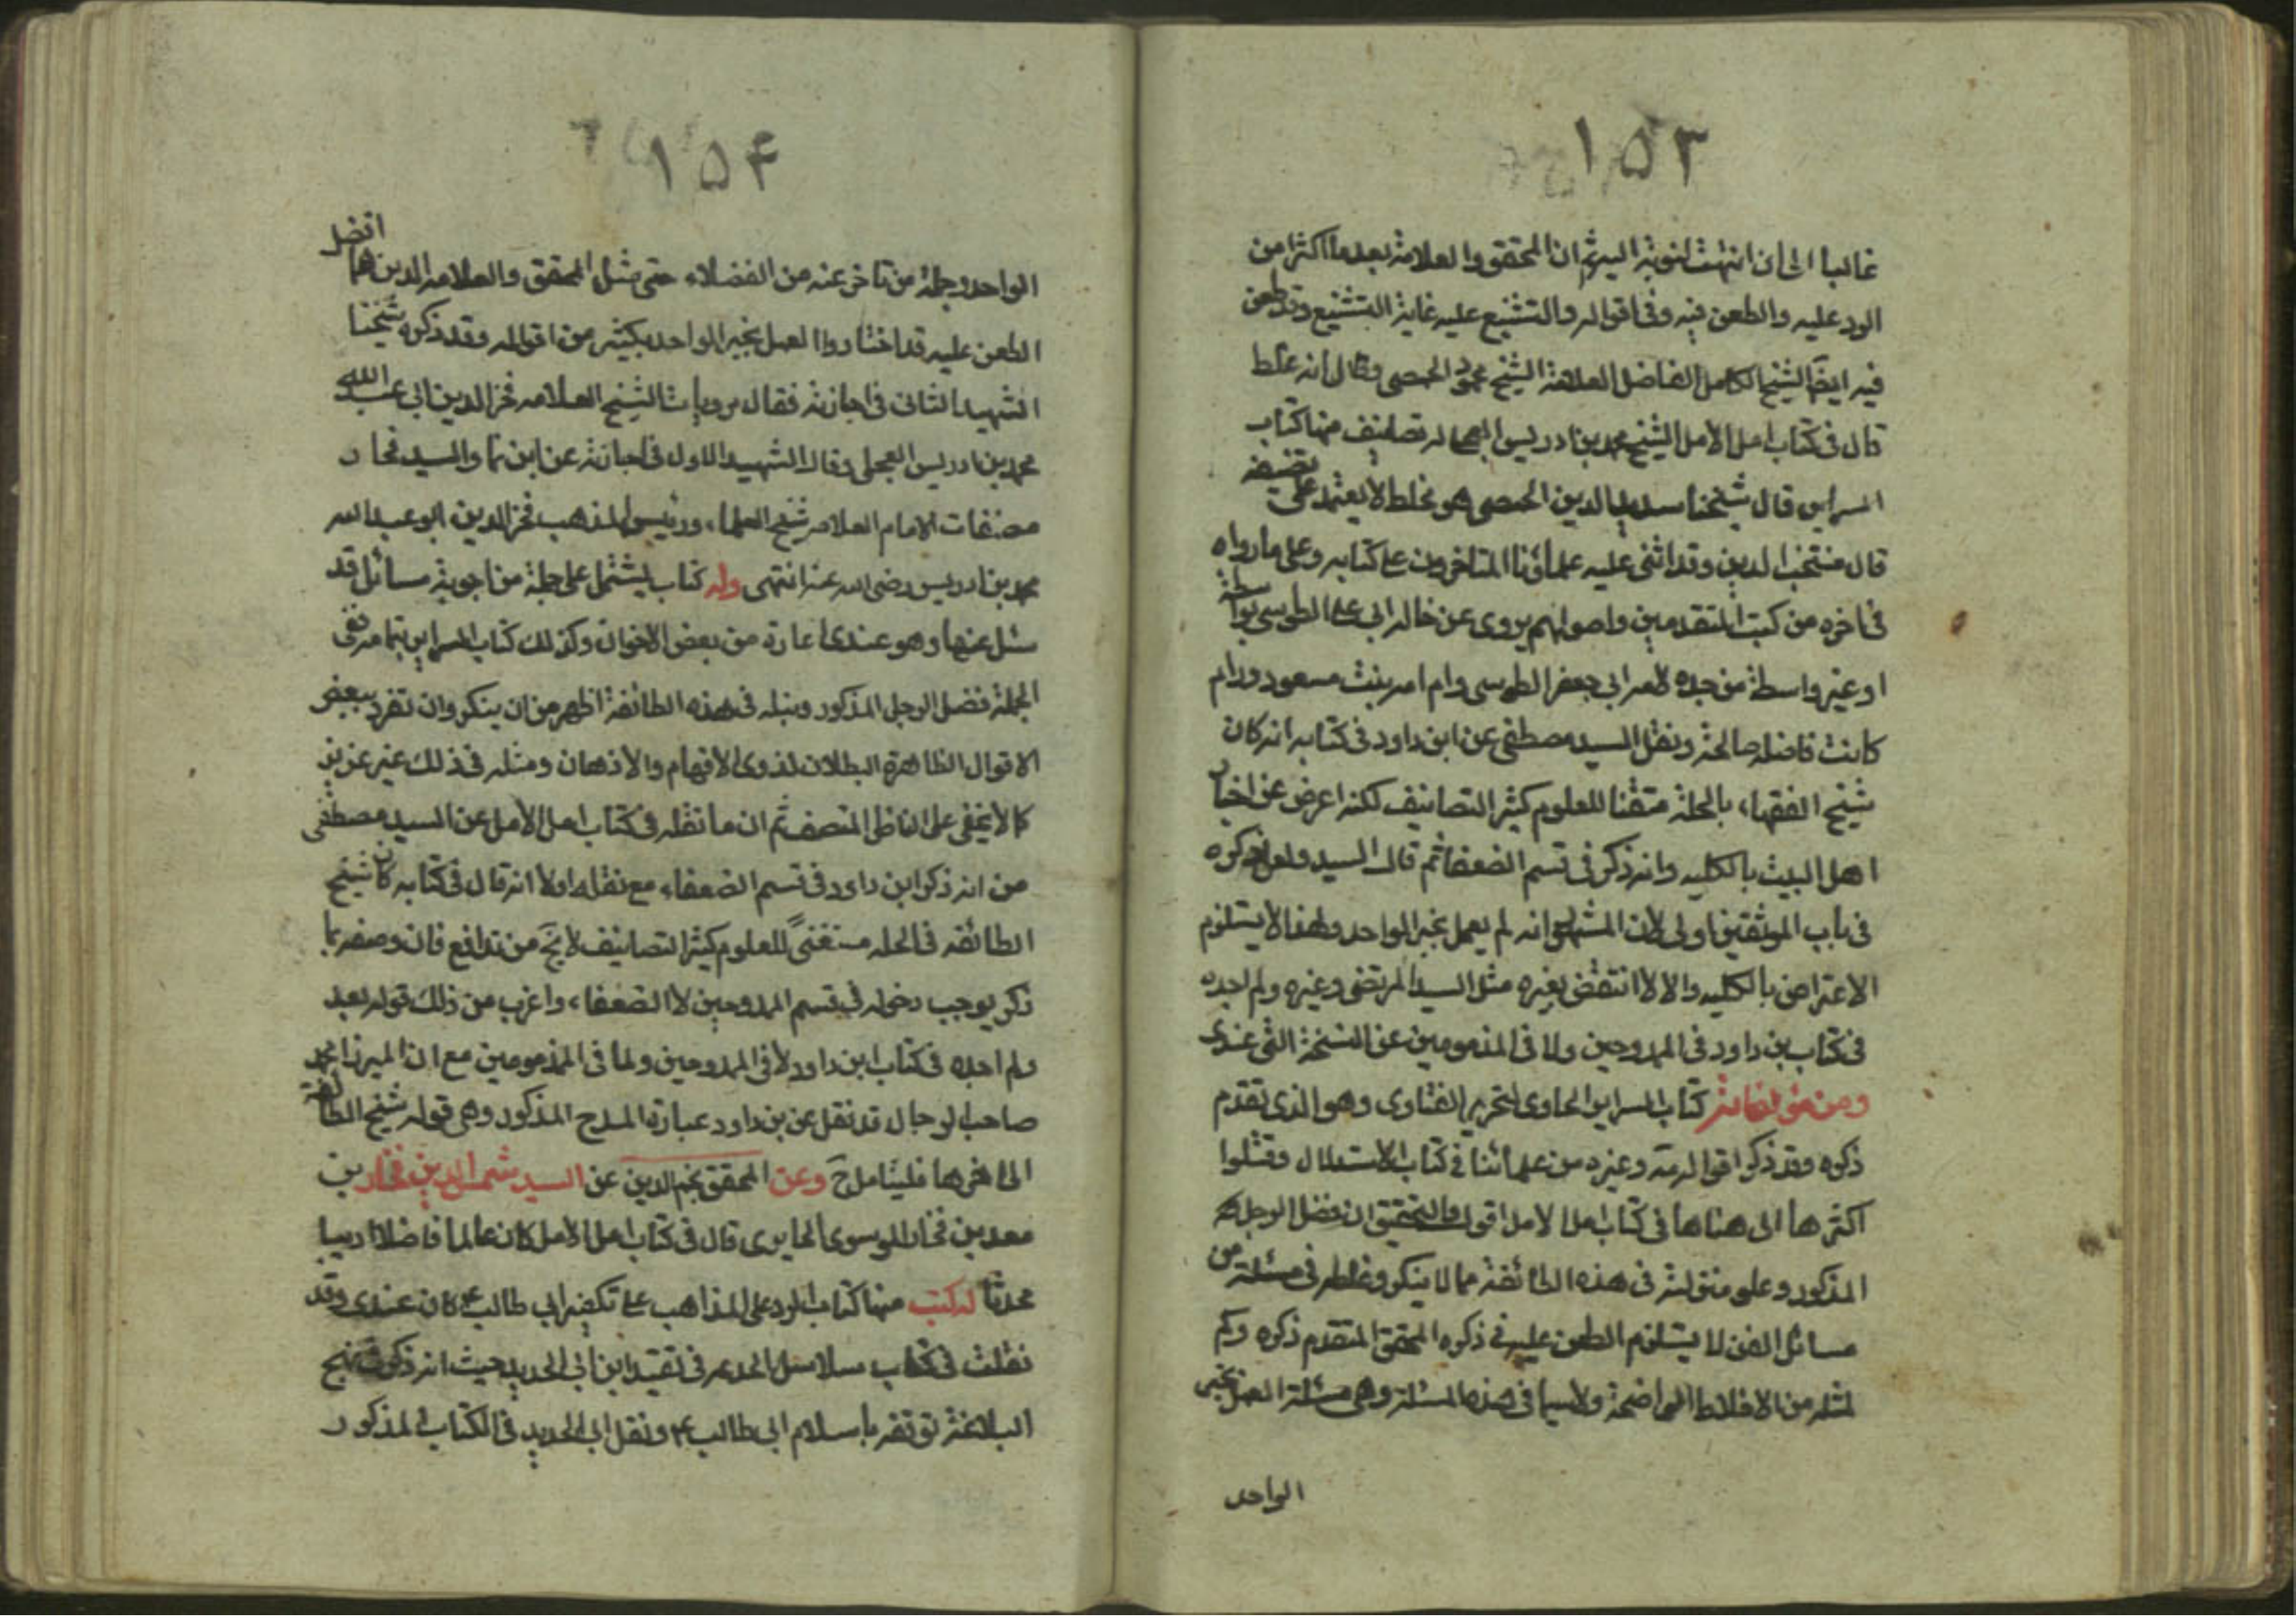 ١٥٣
غالبا الى ان انتهت النوبة اليه ثم ان المحقق والعلامة بعده اكثرا من
الرد عليه والطعن فيه وفي اقواله والتشنيع عليه غاية التشنيع وقد طعن
فيه ايضا الشيخ الكامل الفاضل العلامة الشيخ محمود الحمصي وقال انه مخلط
قال في كتاب امل الآمل الشيخ محمد بن ادريس العجلي له تصانيف منها كتاب
السراير قال شيخنا سديد الدين الحمصي هو مخلط لا يعتمد على تصنيفه
قال منتجب الدين وقد اثنى عليه علماؤنا المتاخرون على كتابه وعلى ما رواه
في اخره من كتب المتقدمين واصولهم يروى عن خاله ابي علي الطوسي بواسطة
او غير واسطة من جده لامه ابي جعفر الطوسي وام امه بنت مسعود ورام
كانت فاضلة صالحة ونقل السيد مصطفى عن ابن داود في كتابه انه كان
شيخ الفقهاء بالحلة متقنا للعلوم كثير التصانيف لكنه اعرض عن اخبار
اهل البيت بالكليه وانه ذكر في قسم الضعفا ثم قال السيد ولعل ذكره
في باب الموثقين اولى لان المشهور انه لم يعمل بخبر الواحد وهذا لا يستلزم
الاعتراض بالكليه والا لا انتقض بغيره مثل السيد المرتضى وغيره ولم اجده
في كتاب بن داود في الممدوحين ولا في المذمومين عن النسخة التي عندى
ومن مؤلفاته كتاب السراير الحاوى لتحرير الفتاوى وهو الذى تقدم
ذكره وقد ذكر اقواله مه وغيره من علمائنا في كتاب الاستدلال وقبلوا
اكثرها الى هنا ها في كتاب امل الامل اقول والتحقيق ان فضل الرجل هه
المذكور وعلو منزلته في هذه الطائفة مما لا ينكر وغلطه في مسئلة من
مسائل الفن لا يستلزم الطعن عليه في ذكره المحقق المتقدم ذكره وكم
لمثله من الاغلاط الواضحة ولا سيما في هذه المسئلة وهي مسئلة العمل بخبر
الواحد
١٥۴
الواحد وجملة من تاخر عنه من الفضلاء حتى مثل المحقق والعلامه الذين هما افضل
الطعن عليه قد اختاروا العمل بخبر الواحد بكثير من اقواله وقد ذكره شيخنا
الشهيد الثاني في اجازته فقال مرويات الشيخ العلامه فخر الدين ابي عبد الله
محمد بن ادريس العجلي وقال الشهيد الاول في اجازته عن ابن نما والسيد فخار
مصنفات الامام العلامه شيخ العلماء ورئيس المذهب فخر الدين ابو عبد الله
محمد بن ادريس رضى الله عنه انتهى وله كتاب يشتمل على جملة من اجوبة مسائل قد
سئل عنها وهو عندى اعارة من بعض الاخوان وكذلك كتاب السراير بتمامه ففي
الجملة فضل الرجل المذكور ونبله في هذه الطائفة اظهر من ان ينكر وان تفرد ببعض
الاقوال الظاهرة البطلان لذوى الافهام والاذهان ومثله في ذلك غير عزيز
كما لا يخفى على الناظر المنصف ثم ان ما نقله في كتاب امل الامل عن السيد مصطفى
من انه ذكر ابن داود في قسم الضعفاء مع نقله اولا انه قال في كتابه كان شيخ
الطائفه في الحله مستغنىً للعلوم كثير التصانيف لا يخ من تدافع فان وصفه بما
ذكر يوجب دخوله في قسم الممدوحين لا الضعفاء واغرب من ذلك قوله بعد
ولم اجده في كتاب ابن داود لا في الممدوحين ولما في المذمومين مع ان الميرزا محمد
صاحب الرجال قد نقل عن بن داود عبارة المدح المذكور وهي قوله شيخ الطائفة
الى اخرها فليتامل ح وعن المحقق نجم الدين عن السيد شمس الدين فخار بن
معد بن فخار الموسوى الحايرى قال في كتاب امل الامل كان عالما فاضلا اديبا
محدثا له كتب منها كتاب الرد على الذاهب على تكفير ابي طالب ع كان عندى وقد
نقلت في كتاب سلاسل الحديد في تقييد ابن ابي الحديد حيث انه ذكر في شرح نهج
البلاغة توقفه باسلام ابي طالب ع ونقل ابي الحديد في الكتاب المذكور